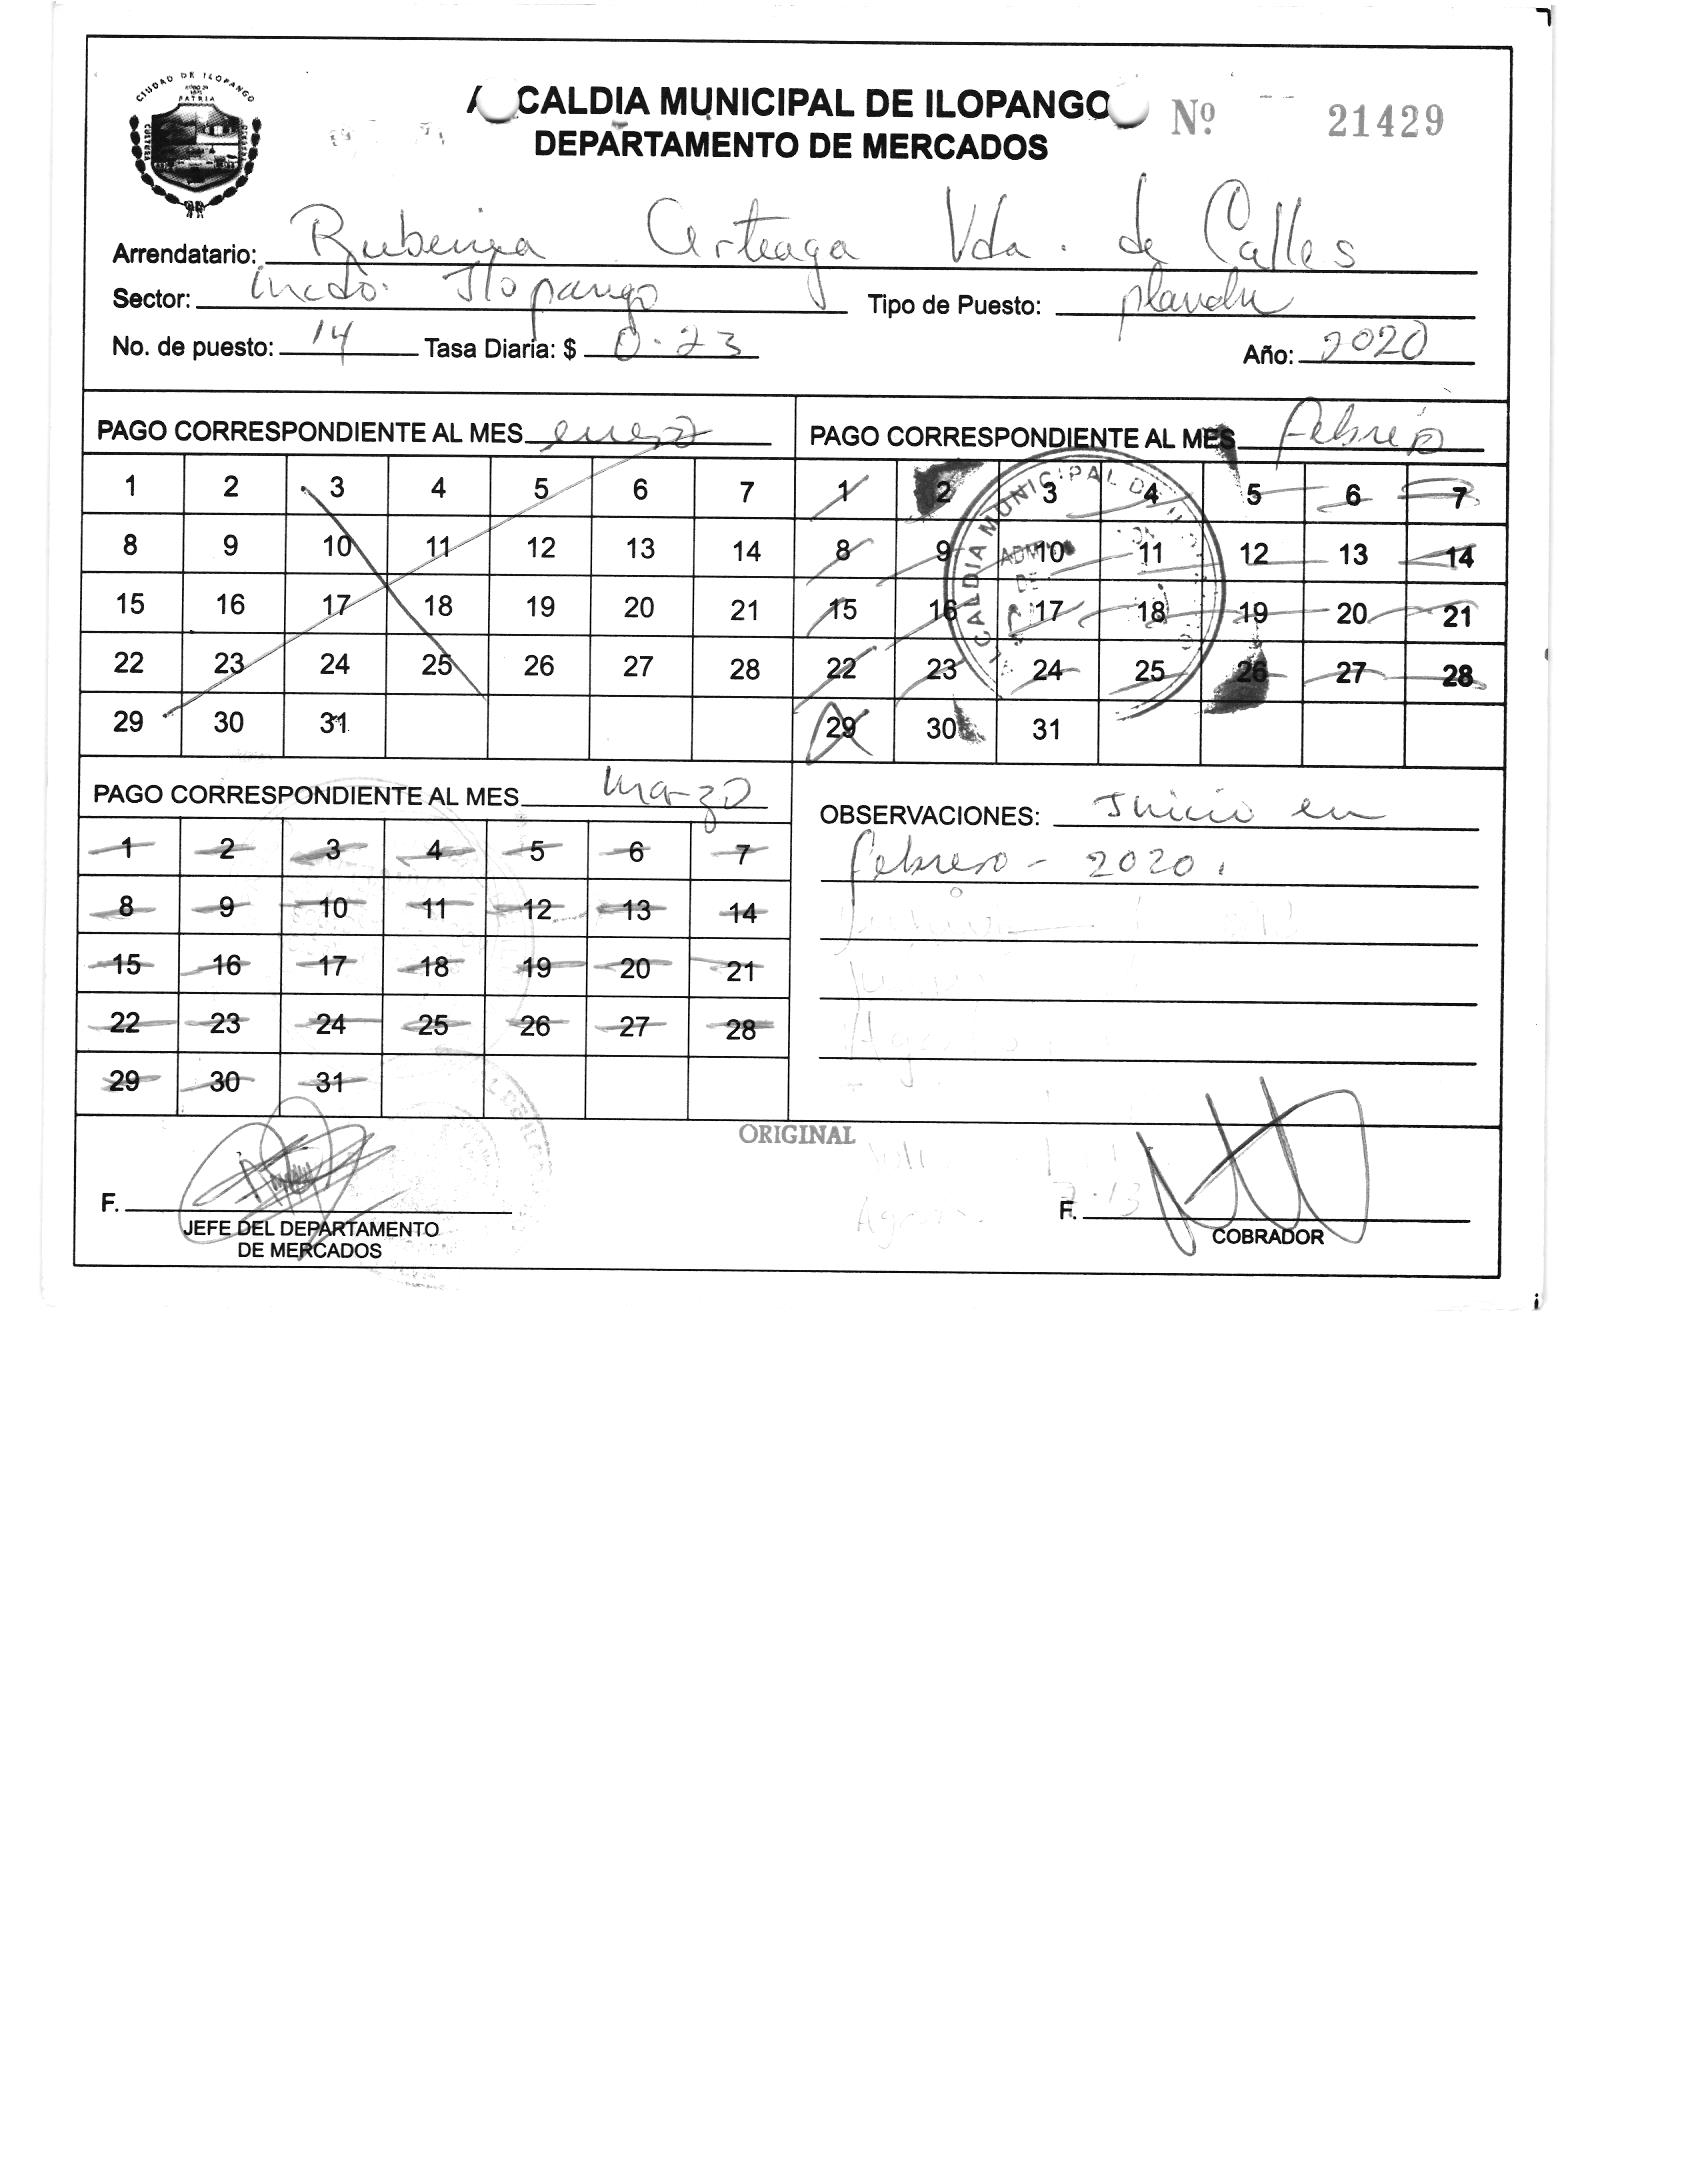 CIUDAD DE ILOPANGO
PATRIA
CULTURA
ALCALDIA MUNICIPAL DE ILOPANGO
Nº 21429
DEPARTAMENTO DE MERCADOS
Arrendatario: Rubenia Arteaga Vda. de Calles
Sector: mcdo. Ilopango Tipo de Puesto: plancha
No. de puesto: 14 Tasa Diaria: $ 0.23 Año: 2020
PAGO CORRESPONDIENTE AL MES enero
1 2 3 4 5 6 7
8 9 10 11 12 13 14
15 16 17 18 19 20 21
22 23 24 25 26 27 28
29 30 31
PAGO CORRESPONDIENTE AL MES Febrero
1 2 3 4 5 6 7
8 9 10 11 12 13 14
15 16 17 18 19 20 21
22 23 24 25 26 27 28
29 30 31
ALCALDIA MUNICIPAL DE
PAGO CORRESPONDIENTE AL MES marzo
1 2 3 4 5 6 7
8 9 10 11 12 13 14
15 16 17 18 19 20 21
22 23 24 25 26 27 28
29 30 31
OBSERVACIONES: Inicio en
febrero - 2020.
ORIGINAL
F.
JEFE DEL DEPARTAMENTO
DE MERCADOS
F.
COBRADOR